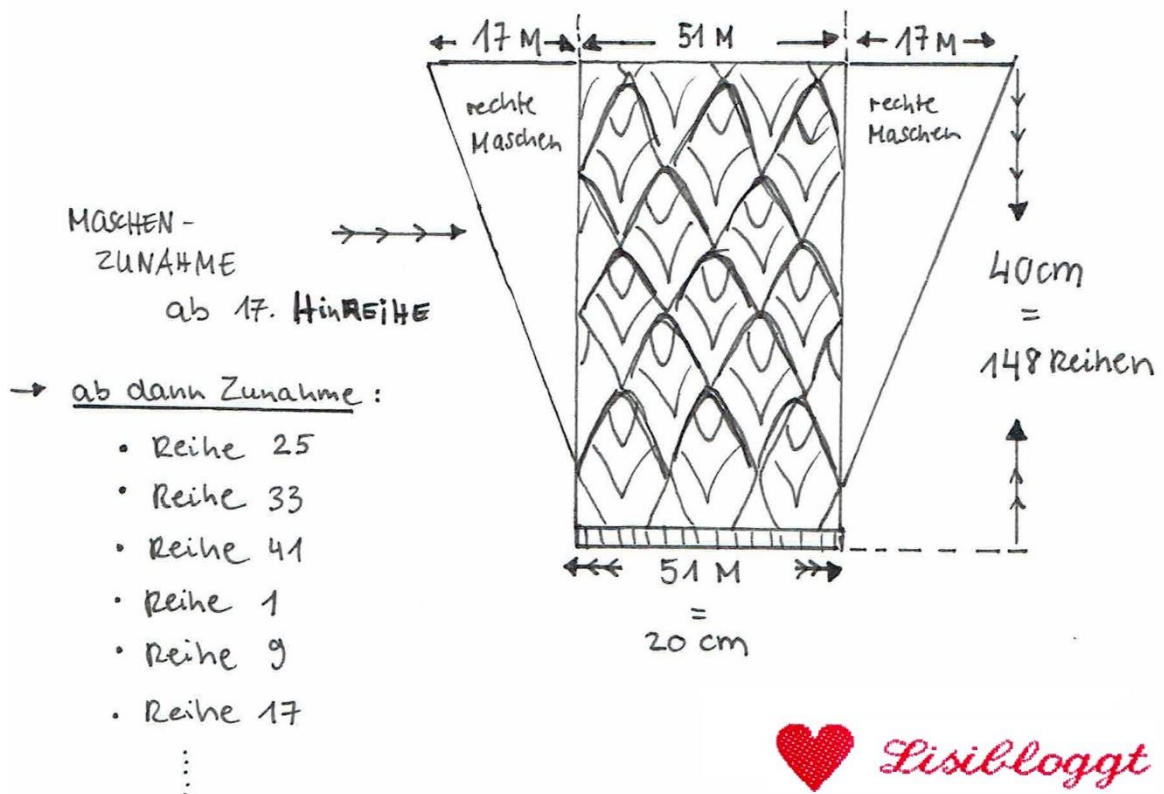 17 M 51 M 17 M
rechte
Maschen
rechte
Maschen
MASCHEN-
ZUNAHME
ab 17. HinREiHE
→ ab dann Zunahme:
• Reihe 25
• Reihe 33
• Reihe 41
• Reihe 1
• Reihe 9
• Reihe 17
40cm
=
148 Reihen
51 M
=
20 cm
Lisibloggt